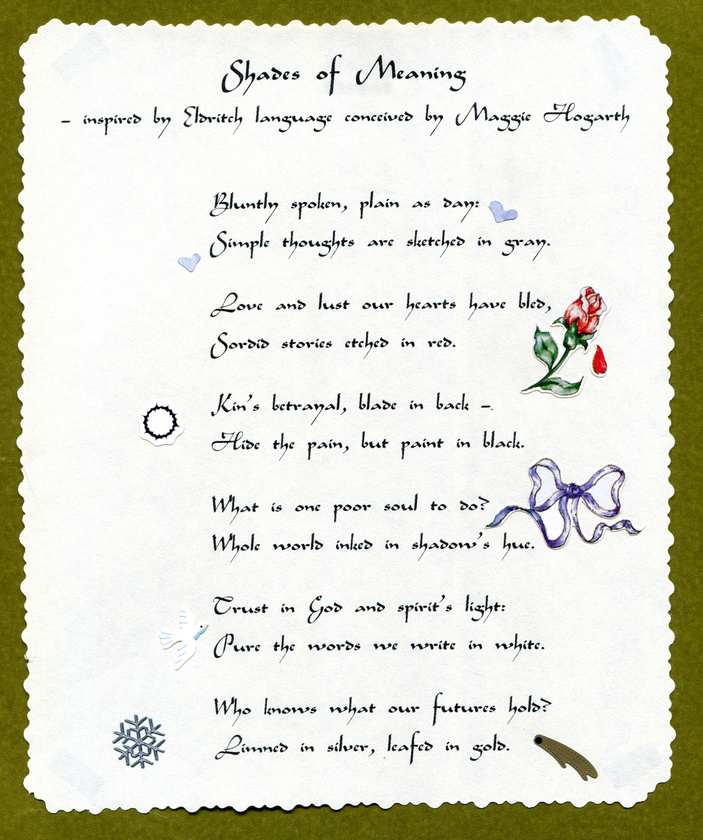 Shades of Meaning
– inspired by Eldritch language conceived by Maggie Hogarth
Bluntly spoken, plain as day:
Simple thoughts are sketched in gray.
Love and lust our hearts have bled,
Sordid stories etched in red.
Kin's betrayal, blade in back –
Hide the pain, but paint in black.
What is one poor soul to do?
Whole world inked in shadow's hue.
Trust in God and spirit's light:
Pure the words we write in white.
Who knows what our futures hold?
Limned in silver, leafed in gold.